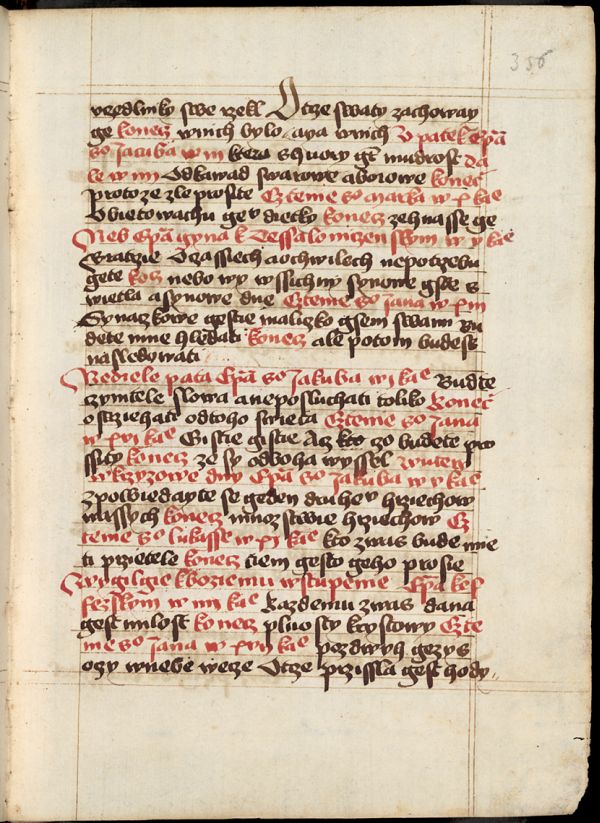 356
vczedlniky swe rzekl Otcze swaty zachoway
ge konecz wnich bylo aya wnich V patek Epla
so Jacuba w iii ktera s quory gt mudrost da
le w iiii Odkawad swarowe aboiowe konecz
protoze zle prosite Cztenie so marka w x kae
Obietowachu gey dietky konecz zehnasse ge
Neb Epla gyna k Tessaloniczenskym w v kae
Bratrzie Oczassiech aochwilech nepotrzebu
gete kocz nebo wy wssichny synowe gste s
wietla asynowe dne Cztenie so Jana w xiii
Synaczkowe gestie maliczko gsem swami Bu
dete mne hledati konecz ale potom budess
nasledowati
Nediele pata Epla so Jakuba w i kae Budte
czynitele slowa aneposluchati toliko Konecz
ostrziehati odtoho swieta Cztenie so Jana
w xvi kae Gistie gistie Acz kto zo budete pro
ssyty konecz ze sy odboha wyssel Wuterȳ
wkrzyzowe dny Epla so Jakuba w v kae
Zpowiedayte se geden druhey hrziechow
wassych konecz mnozstwie hrziechow Cz
tenie so lukasse w xi kae kto zwas bude mie
ti przietele konecz tiem gesto geho prosie
Wwigiligie kboziemu wstupenie Epla kef
fezskym w iiii kae Kazdemu zwas dana
gest milost konecz plnosty krystowy Czte
nie so Jana w xvii kae pozdwih gezys
oczy wnebe wecze Otcze przissla gest hody